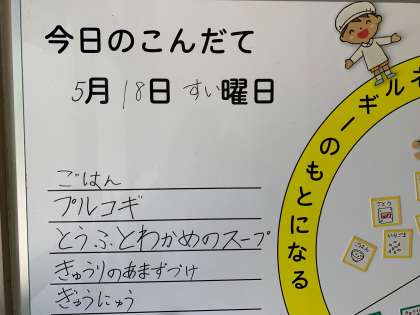 今日のこんだて
5月18日 すい曜日
ごはん
プルコギ
とうふとわかめのスープ
きゅうりのあまずづけ
ぎゅうにゅう
ギルーギーのもとになる
さとう
ごはん